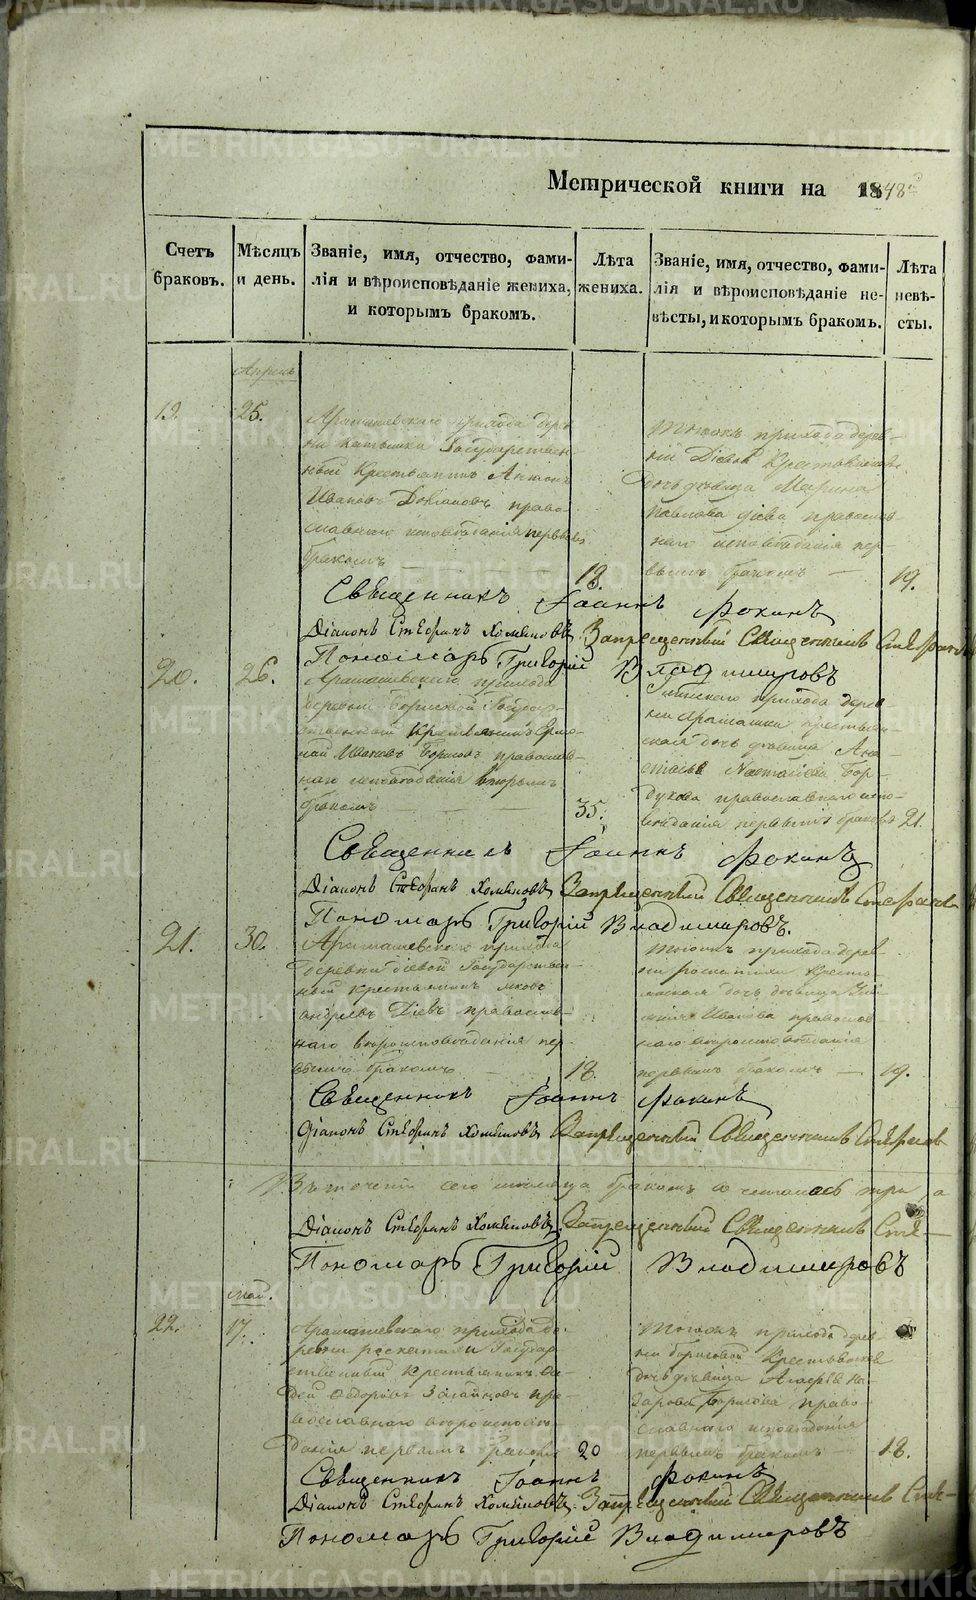 Метрической книги на 1848й
Счетъ браковъ.
Мѣсяцъ и день.
Званіе, имя, отчество, фами-
лія и вѣроисповѣданіе жениха,
и которымъ бракомъ.
Лѣта жениха.
Званіе, имя, отчество, фами-
лія и вѣроисповѣданіе не-
вѣсты, и которымъ бракомъ.
Лѣта невѣ-
сты.
Апрель
19.
25.
Арамашевскаго прихода дерев
ни Катышка Государствен-
ный Крестьянинъ Антонъ
Ивановъ право-
славнаго исповѣданія первымъ
бракомъ
18.
Тогожъ прихода дерев-
ни Діевой Крестьянская
дочь дѣвица Марина
Павлова Діева православ
наго исповѣданія пер-
вымъ бракомъ
19.
Священникъ Іоаннъ Фокинъ
Діаконъ Стефанъ Хомяковъ Запрещенный Священникъ Стефанъ
Пономарь Григорій Владимировъ
20.
26.
Арамашевскаго прихода
деревни Борисовой Государ-
ственный Крестьянинъ Ермо-
лай Ивановъ Борисовъ православ-
наго исповѣданія вторымъ
бракомъ
35.
прихода дерев
ни Арамашки крестьян-
ская дочь дѣвица Ана-
стасья Бор-
дукова православнаго испо-
вѣданія первымъ бракомъ 21.
Священникъ Іоаннъ Фокинъ
Діаконъ Стефанъ Хомяковъ Запрещенный Священникъ Стефанъ
Пономарь Григорій Владимировъ.
21.
30.
Арамашевскаго прихода
деревни Діевой Государствен-
ный крестьянинъ Яковъ
Андреевъ Діевъ православ-
наго вѣроисповѣданія пер-
вымъ бракомъ
18.
Тогожъ прихода дерев-
ни Роскатихи Кресть-
янская дочь дѣвица
Иванова православ
наго вѣроисповѣданія
первымъ бракомъ
19.
Священникъ Іоаннъ Фокинъ
Діаконъ Стефанъ Хомяковъ Запрещенный Священникъ Стефанъ
Въ теченіи сего мѣсяца бракомъ сочеталось три
Діаконъ Стефанъ Хомяковъ Запрещенный Священникъ Сте-
Пономарь Григорій Владимировъ
Май.
22.
17.
Арамашевскаго прихода де-
ревни Роскатихи Государ-
ственный Крестьянинъ
Федоровъ пра-
вославнаго вѣроисповѣ-
данія первымъ бракомъ
20
Тогожъ прихода дерев
ни Борисовой Крестьянская
дочь дѣвица На-
зарова Борисова право-
славнаго исповѣданія
первымъ бракомъ
18.
Священникъ Іоаннъ Фокинъ
Діаконъ Стефанъ Хомяковъ. Запрещенный Священникъ Сте-
Пономарь Григорій Владимировъ
METRIKI.GASO-URAL.RU